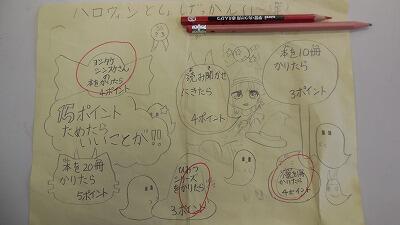 ハロウィンとしょしつげっかん(1〜1)
ヨシタケ
シンスケさん
の
本をかりたら
4ポイント
読み聞かせ
にきたら
4ポイント
本を10冊
かりたら
3ポイント
15ポイント
ためたら
いいことが!!
本を20冊
かりたら
5ポイント
シリーズ
をかりたら
3ポイント
かりたら
4ポイント